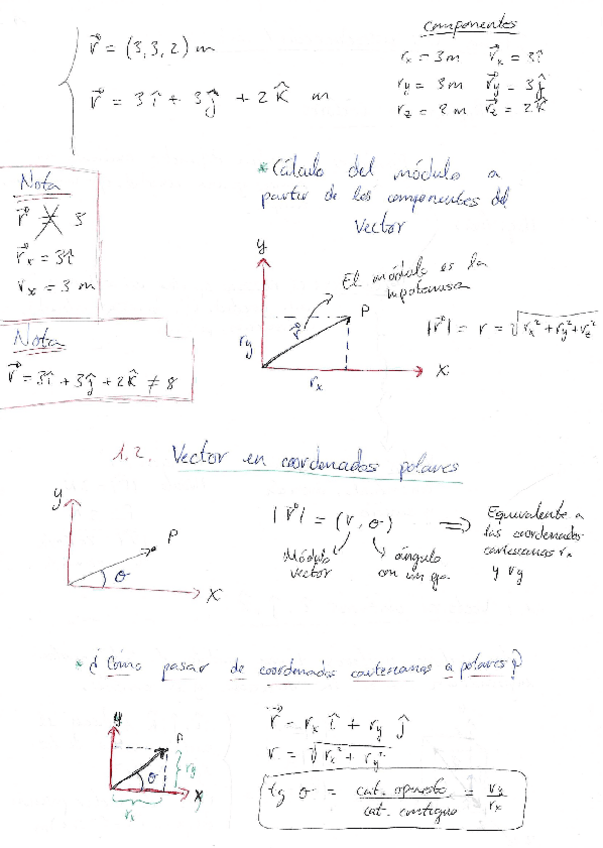 r⃗ = (3,3,2) m
r⃗ = 3î + 3ĵ + 2k̂ m
componentes
rₓ = 3m r⃗ₓ = 3î
r_y = 3m r⃗_y = 3ĵ
r_z = 2m r⃗_z = 2k̂
Nota
r⃗ ≠ 3
r⃗ₓ = 3î
rₓ = 3 m
Nota
r⃗ = 3î + 3ĵ + 2k̂ ≠ 8
* Cálculo del módulo a
partir de los componentes del
vector
y
El módulo es la
hipotenusa
P
r⃗
r_y
rₓ
x
|r⃗| = r = √rₓ² + r_y² + r_z²
1.2. Vector en coordenadas polares
y
P
θ
x
|r⃗| = (r, θ) ⇒ Equivalente a
las coordenadas
cartesianas rₓ
y r_y
Módulo
vector
ángulo
con un eje
* ¿Cómo pasar de coordenadas cartesianas a polares?
y
P
θ
r_y
x
rₓ
r⃗ = rₓ î + r_y ĵ
r = √rₓ² + r_y²
tg θ = cat. opuesto / cat. contiguo = r_y / rₓ